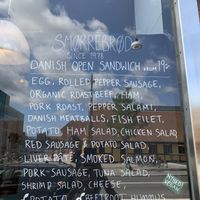 SMØRREBRØD
SINCE 1978
DANISH OPEN SANDWICH FROM 19.-
EGG, ROLLED PEPPER SAUSAGE,
ORGANIC ROAST BEEF, HAM,
PORK ROAST, PEPPER SALAMI,
DANISH MEATBALLS, FISH FILET,
POTATO, HAM SALAD, CHICKEN SALAD
RED SAUSAGE & POTATO SALAD,
LIVER PATÉ, SMOKED SALMON,
PORK-SAUSAGE, TUNA SALAD,
SHRIMP SALAD, CHEESE,
POTATO, BEETROOT HUMMUS